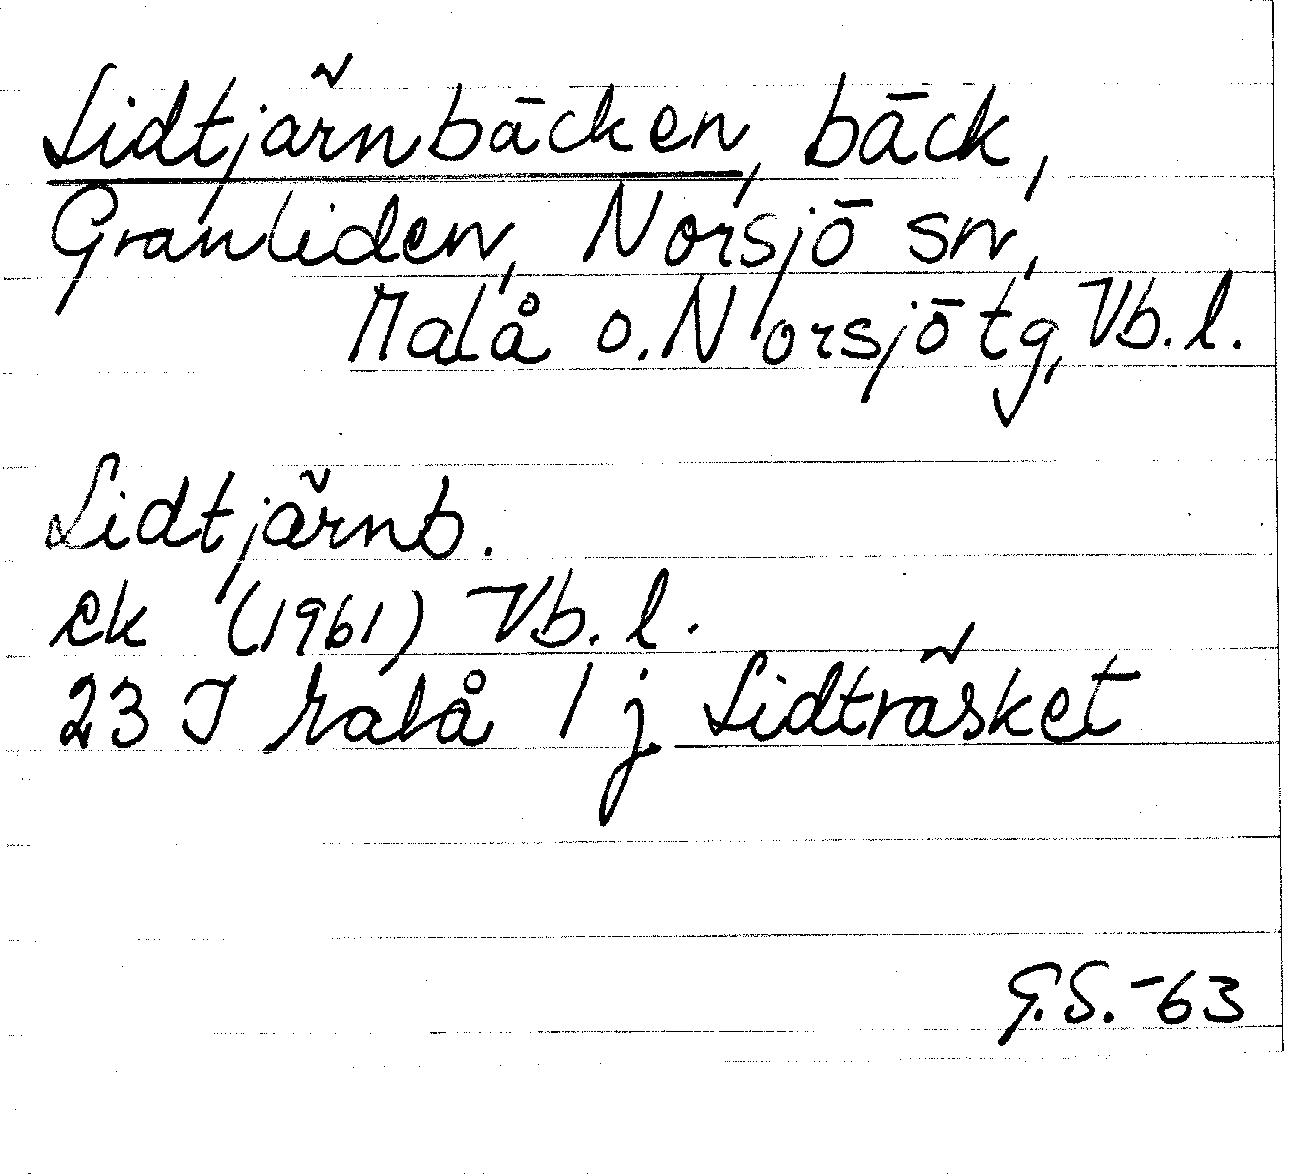 Lidtjärnbäcken, bäck,
Granliden, Norsjö sn,
Malå o. Norsjö tg, Vb. l.
Lidtjärnb.
ek (1961) Vb. l.
23 I Malå 1 j Lidträsket
G.S. -63